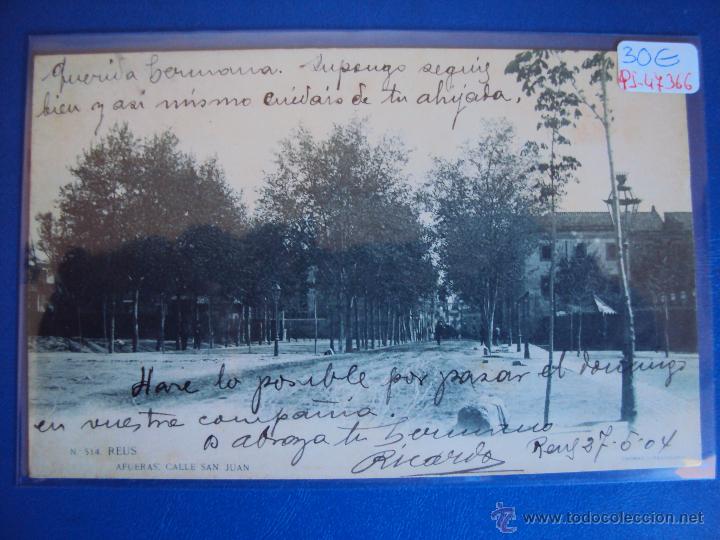 30€
PS-47366
Querida hermana. Supongo seguis
bien y asi mismo cuidais de tu ahijada.
Hare lo posible por pasar el domingo
en vuestra compañia.
Os abraza tu hermano
Ricardo Reus 27-5-04
N.º 514. REUS
AFUERAS, CALLE SAN JUAN
© www.todocoleccion.net